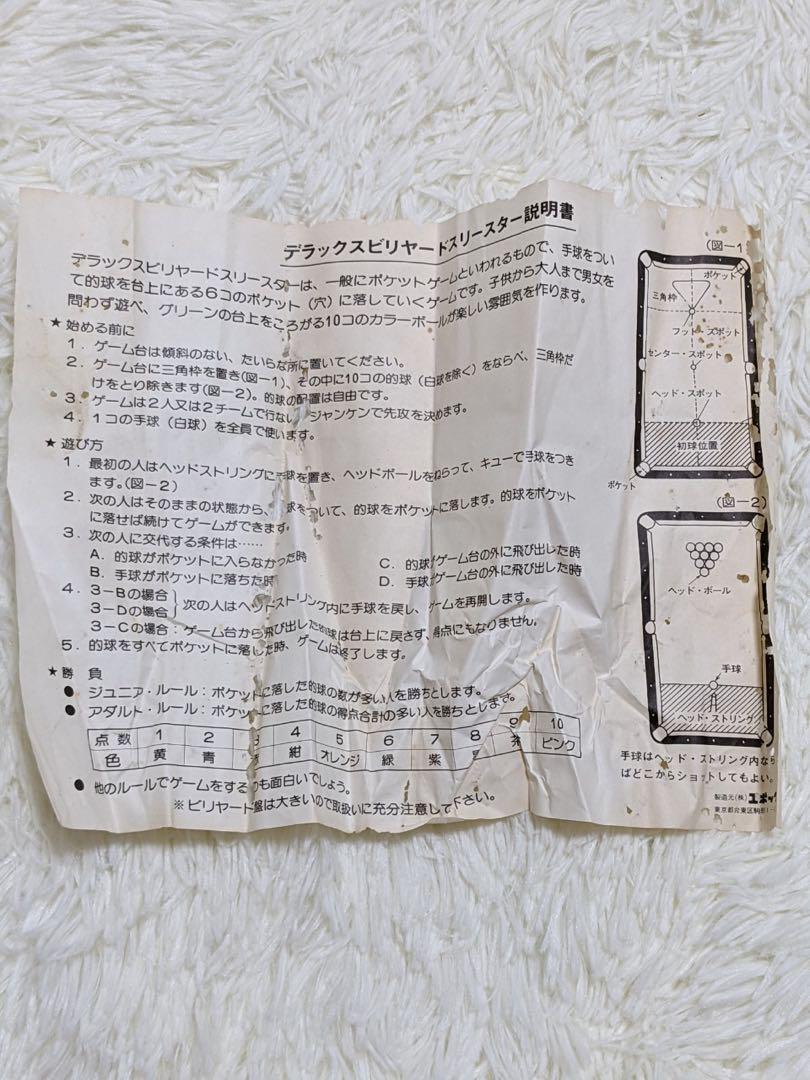 デラックスビリヤードスリースター説明書
デラックスビリヤードスリースターは、一般にポケットゲームといわれるもので、手球をつい
て的球を台上にある6コのポケット（穴）に落していくゲームです。子供から大人まで男女を
問わず遊べ、グリーンの台上をころがる10コのカラーボールが楽しい雰囲気を作ります。
★始める前に
1．ゲーム台は傾斜のない、たいらな所に置いてください。
2．ゲーム台に三角枠を置き(図ー1)、その中に10コの的球（白球を除く）をならべ、三角枠だ
けをとり除きます(図ー2)。的球の配置は自由です。
3．ゲームは2人又は2チームで行ない、ジャンケンで先攻を決めます。
4．1コの手球（白球）を全員で使います。
★遊び方
1．最初の人はヘッドストリングに手球を置き、ヘッドボールをねらって、キューで手球をつき
ます。(図ー2)
2．次の人はそのままの状態から、球をついて、的球をポケットに落します。的球をポケット
に落せば続けてゲームができます。
3．次の人に交代する条件は……
A．的球がポケットに入らなかった時
B．手球がポケットに落ちた時
C．的球がゲーム台の外に飛び出した時
D．手球がゲーム台の外に飛び出した時
4．3－Bの場合
3－Dの場合
次の人はヘッドストリング内に手球を戻し、ゲームを再開します。
3－Cの場合：ゲーム台から飛び出した的球は台上に戻さず、得点にもなりません。
5．的球をすべてポケットに落した時、ゲームは終了します。
★勝　負
●ジュニア・ルール：ポケットに落した的球の数が多い人を勝ちとします。
●アダルト・ルール：ポケットに落した的球の得点合計の多い人を勝ちとします。
点数 1 2 3 4 5 6 7 8 9 10
色 黄 青 紺 オレンジ 緑 紫 茶 ピンク
●他のルールでゲームをするのも面白いでしょう。
※ビリヤード盤は大きいので取扱いに充分注意して下さい。
(図ー1
ポケット
三角枠
フット・スポット
センター・スポット
ヘッド・スポット
初球位置
ポケット
(図ー2)
ヘッド・ボール
手球
ヘッド・ストリング
手球はヘッド・ストリング内なら
ばどこからショットしてもよい。
製造元(株)
東京都台東区駒形1-